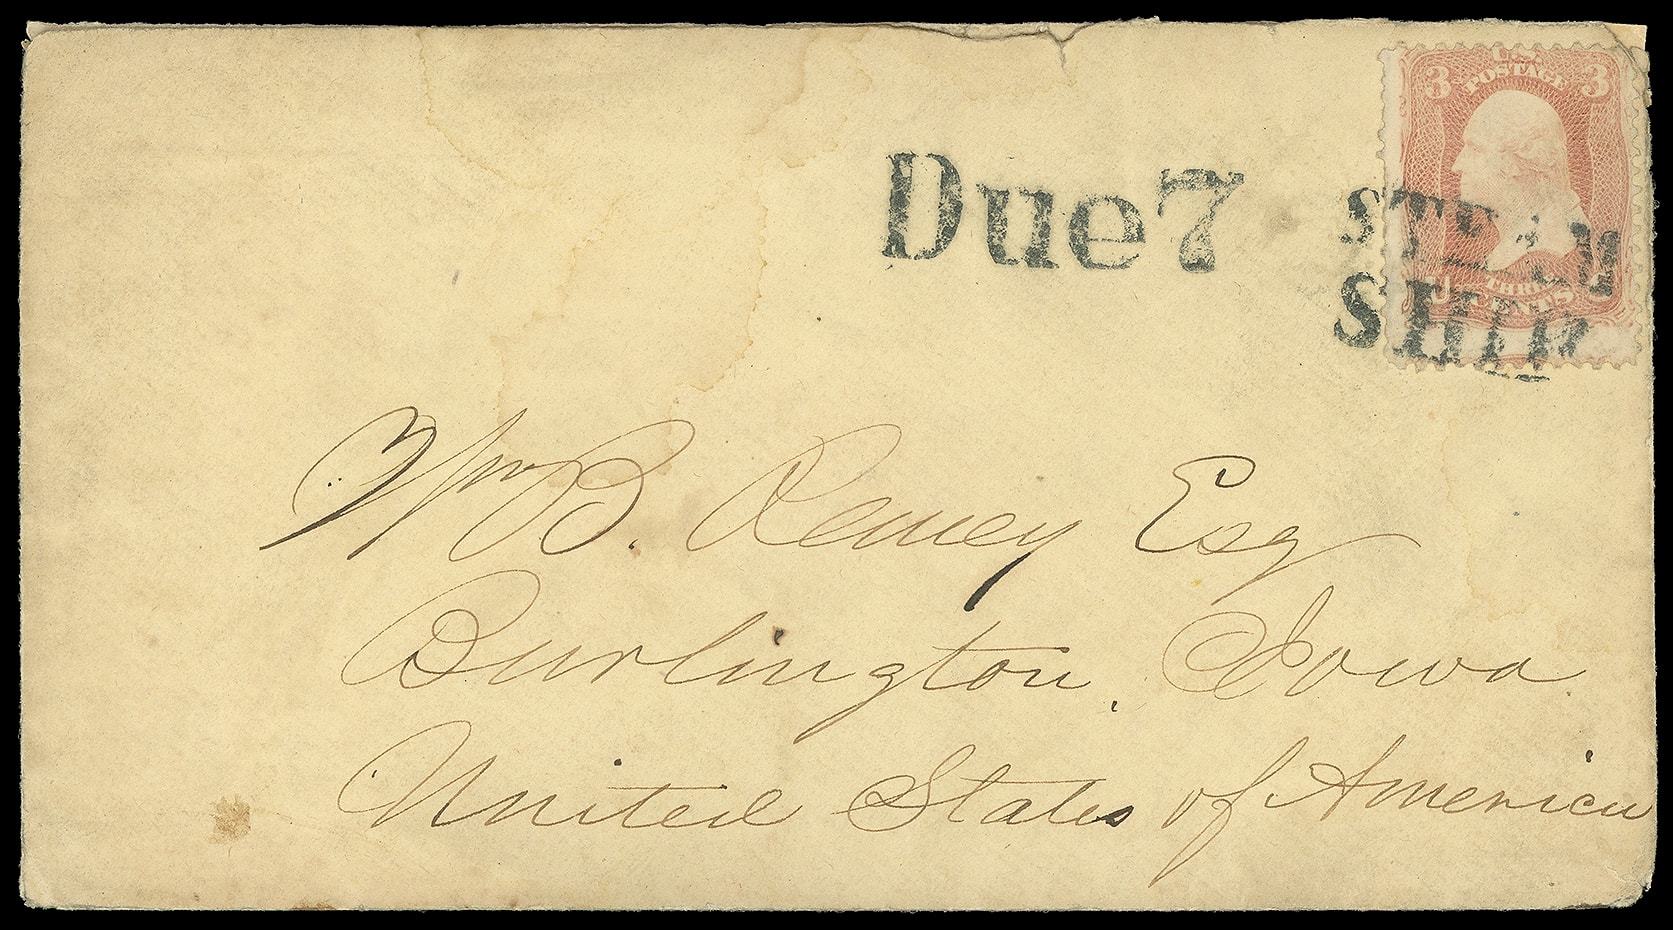 3 U.S. 3
POSTAGE
Due 7
STEAM
SHIP
THREE
CENTS
Wm B. Remey Esq
Burlington, Iowa
United States of America